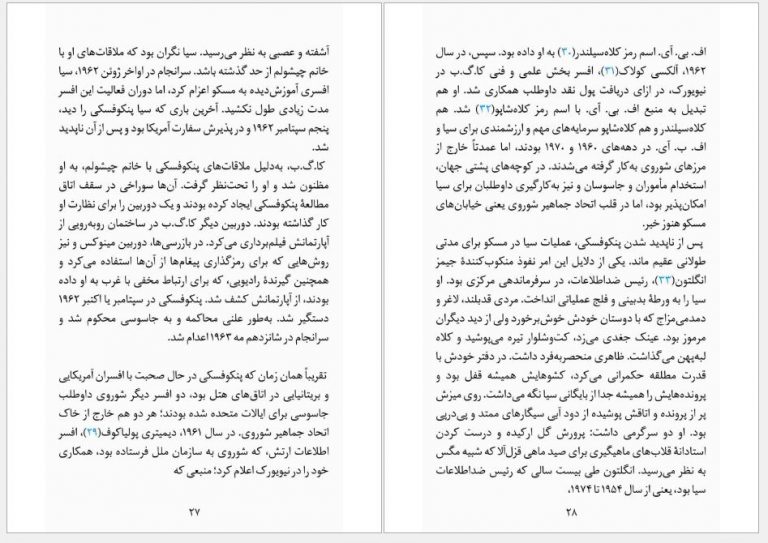 آشفته و عصبی به نظر می‌رسید. سیا نگران بود که ملاقات‌های او با
خانم چیشولم از حد گذشته باشد. سرانجام در اواخر ژوئن ۱۹۶۲، سیا
افسری آموزش‌دیده به مسکو اعزام کرد، اما دوران فعالیت این افسر
مدت زیادی طول نکشید. آخرین باری که سیا پنکوفسکی را دید،
پنجم سپتامبر ۱۹۶۲ و در پذیرش سفارت آمریکا بود و پس از آن ناپدید
شد.
کا.گ.ب، به‌دلیل ملاقات‌های پنکوفسکی با خانم چیشولم، به او
مظنون شد و او را تحت‌نظر گرفت. آن‌ها سوراخی در سقف اتاق
مطالعهٔ پنکوفسکی ایجاد کرده بودند و یک دوربین را برای نظارت او
کار گذاشته بودند. دوربین دیگر کا.گ.ب در ساختمان روبه‌رویی از
آپارتمانش فیلم‌برداری می‌کرد. در بازرسی‌ها، دوربین مینوکس و نیز
روش‌هایی که برای رمزگذاری پیغام‌ها از آن‌ها استفاده می‌کرد و
همچنین گیرندهٔ رادیویی، که برای ارتباط مخفی با غرب به او داده
بودند، از آپارتمانش کشف شد. پنکوفسکی در سپتامبر یا اکتبر ۱۹۶۲
دستگیر شد. به‌طور علنی محاکمه و به جاسوسی محکوم شد و
سرانجام در شانزدهم مه ۱۹۶۳ اعدام شد.
تقریباً همان زمان که پنکوفسکی در حال صحبت با افسران آمریکایی
و بریتانیایی در اتاق‌های هتل بود، دو افسر دیگر شوروی داوطلب
جاسوسی برای ایالات متحده شده بودند؛ هر دو هم خارج از خاک
اتحاد جماهیر شوروی. در سال ۱۹۶۱، دیمیتری پولیاکوف(۲۹)، افسر
اطلاعات ارتش، که شوروی به سازمان ملل فرستاده بود، همکاری
خود را در نیویورک اعلام کرد؛ منبعی که
۲۷
اف. بی. آی. اسم رمز کلاه‌سیلندر(۳۰) به او داده بود. سپس، در سال
۱۹۶۲، آلکسی کولاک(۳۱)، افسر بخش علمی و فنی کا.گ.ب در
نیویورک، در ازای دریافت پول نقد داوطلب همکاری شد. او هم
تبدیل به منبع اف. بی. آی. با اسم رمز کلاه‌شاپو(۳۲) شد. هم
کلاه‌سیلندر و هم کلاه‌شاپو سرمایه‌های مهم و ارزشمندی برای سیا و
اف. ب. آی. در دهه‌های ۱۹۶۰ و ۱۹۷۰ بودند، اما عمدتاً خارج از
مرزهای شوروی به‌کار گرفته می‌شدند. در کوچه‌های پشتی جهان،
استخدام مأموران و جاسوسان و نیز به‌کارگیری داوطلبان برای سیا
امکان‌پذیر بود، اما در قلب اتحاد جماهیر شوروی یعنی خیابان‌های
مسکو هنوز خیر.
پس از ناپدید شدن پنکوفسکی، عملیات سیا در مسکو برای مدتی
طولانی عقیم ماند. یکی از دلایل این امر نفوذ منکوب‌کنندهٔ جیمز
انگلتون(۳۳)، رئیس ضداطلاعات، در سرفرماندهی مرکزی بود. او
سیا را به ورطهٔ بدبینی و فلج عملیاتی انداخت. مردی قدبلند، لاغر و
دمدمی‌مزاج که با دوستان خودش خوش‌برخورد ولی از دید دیگران
مرموز بود. عینک جغدی می‌زد، کت‌وشلوار تیره می‌پوشید و کلاه
لبه‌پهن می‌گذاشت. ظاهری منحصربه‌فرد داشت. در دفتر خودش با
قدرت مطلقه حکمرانی می‌کرد، کشوهایش همیشه قفل بود و
پرونده‌هایش را همیشه جدا از بایگانی سیا نگه می‌داشت. روی میزش
پر از پرونده و اتاقش پوشیده از دود آبی سیگارهای ممتد و پی‌درپی
بود. او دو سرگرمی داشت: پرورش گل ارکیده و درست کردن
استادانهٔ قلاب‌های ماهیگیری برای صید ماهی قزل‌آلا که شبیه مگس
به نظر می‌رسید. انگلتون طی بیست سالی که رئیس ضداطلاعات
سیا بود، یعنی از سال ۱۹۵۴ تا ۱۹۷۴،
۲۸